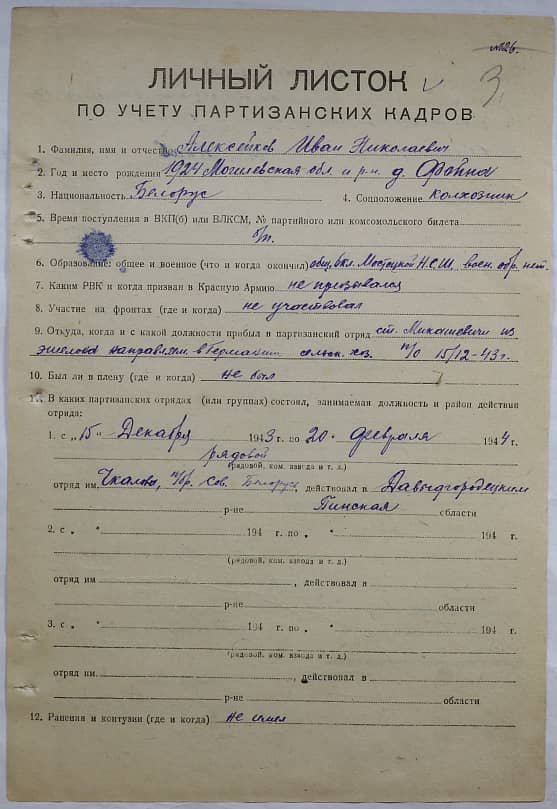 №26.
3
ЛИЧНЫЙ ЛИСТОК
ПО УЧЕТУ ПАРТИЗАНСКИХ КАДРОВ
1. Фамилия, имя и отчество Алексейков Иван Николаевич
2. Год и место рождения 1924 Могилевская обл. и р-н д.
3. Национальность Белорус 4. Соцположение колхозник
5. Время поступления в ВКП(б) или ВЛКСМ, № партийного или комсомольского билета
б/п.
6. Образование: общее и военное (что и когда окончил) общ. 6 кл. Мостоцкой Н.С.Ш. воен. обр. нет.
7. Каким РВК и когда призван в Красную Армию не призывался
8. Участие на фронтах (где и когда) не участвовал
9. Откуда, когда и с какой должности прибыл в партизанский отряд ст. Микашевичи из
эшелона направлям. в Германию сельск. хоз. п/о 15/12-43 г.
10. Был ли в плену (где и когда) не был
11. В каких партизанских отрядах (или группах) состоял, занимаемая должность и район действия
отряда:
1. с „15" Декабря 1943 г. по 20 февраля 1944 г.
рядовой
(рядовой, ком. взвода и т. д.)
отряд им. Чкалова, п/бр. Сов. Белорус, действовал в Давыдгородецким
р-не Пинская области
2. с „ " 194 г. по „ " 194 г.
(рядовой, ком. взвода и т. д.)
отряд им , действовал в
р-не области
3. с „ " 194 г. по „ " 194 г.
(рядовой, ком. взвода и т. д.)
отряд им. , действовал в
р-не области
12. Ранения и контузии (где и когда) не имел